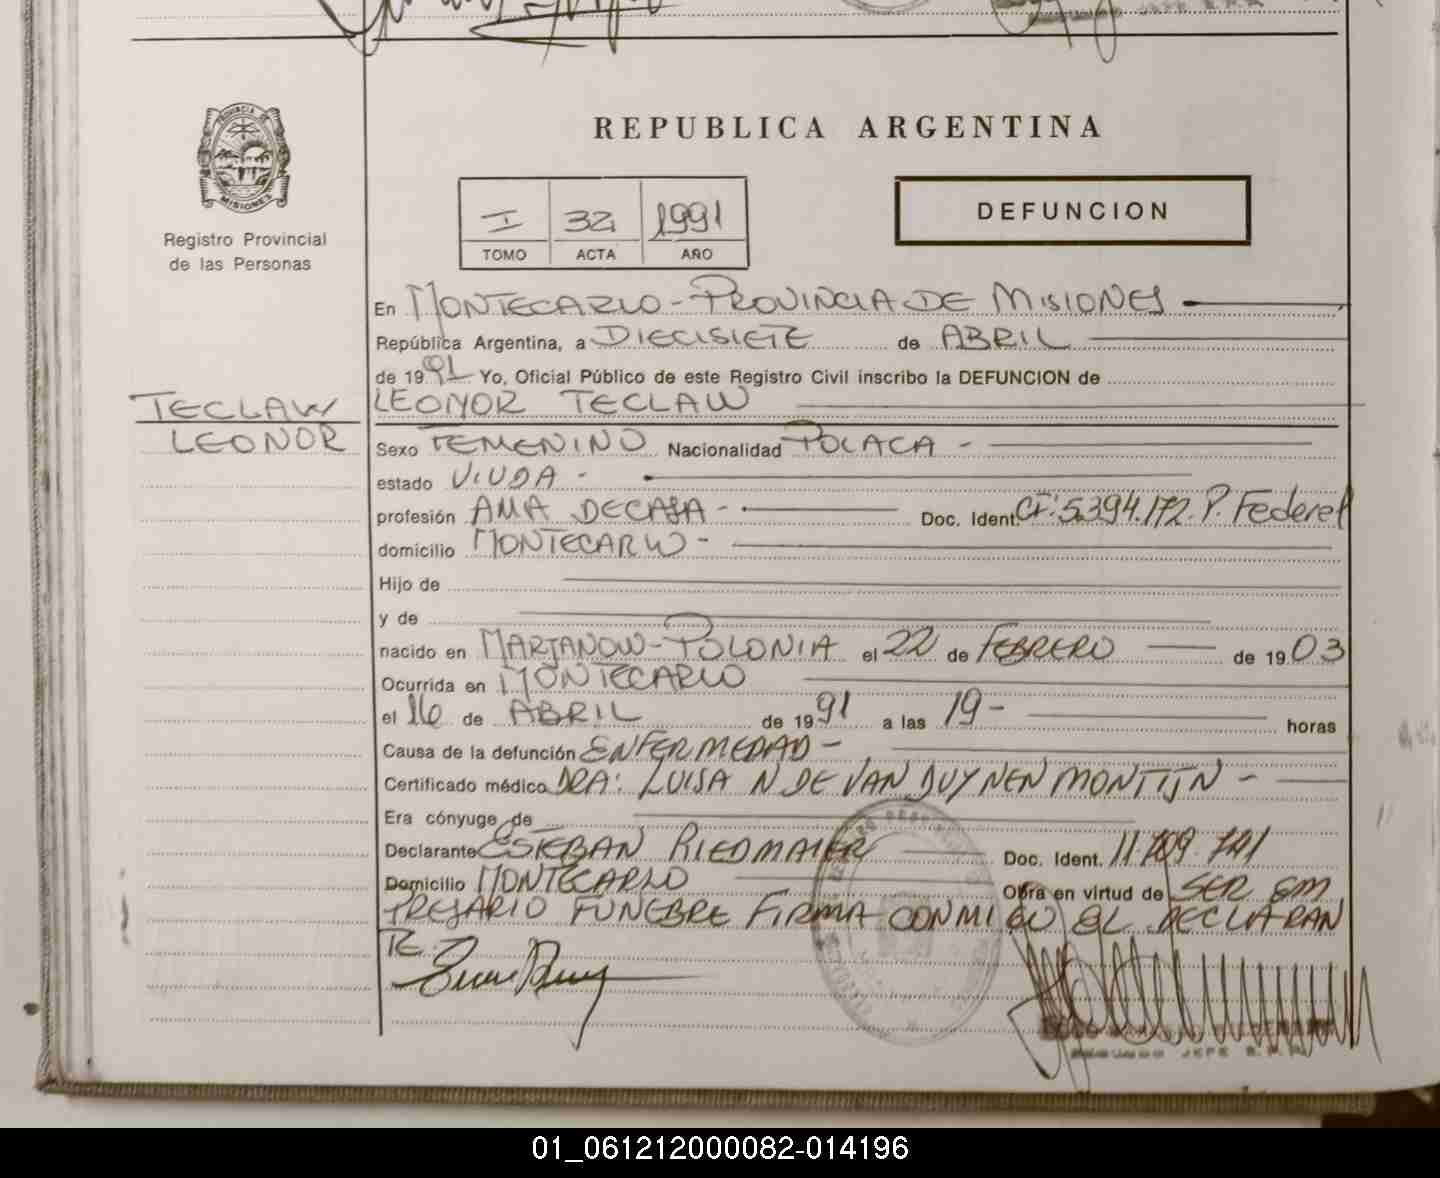 PROVINCIA DE
MISIONES
Registro Provincial
de las Personas
REPUBLICA ARGENTINA
I 32 1991
TOMO ACTA AÑO
DEFUNCION
En MONTECARLO - PROVINCIA DE MISIONES
República Argentina, a DIECISIETE de ABRIL
de 1991 Yo, Oficial Público de este Registro Civil inscribo la DEFUNCION de
TECLAW
LEONOR
LEONOR TECLAW
Sexo FEMENINO Nacionalidad POLACA -
estado VIUDA -
profesión AMA DE CASA - Doc. Ident. CI: 5.394.172. P. Federal
domicilio MONTECARLO -
Hijo de
y de
nacido en MARJANOW - POLONIA el 22 de FEBRERO de 1903
Ocurrida en MONTECARLO
el 16 de ABRIL de 1991 a las 19 - horas
Causa de la defunción ENFERMEDAD -
Certificado médico DRA: LUISA N DE VAN DUYNEN MONTIJN -
Era cónyuge de
Declarante ESTEBAN RIEDMAIER Doc. Ident. 11.709.741
Domicilio MONTECARLO Obra en virtud de SER EM
PRESARIO FUNEBRE FIRMA CONMIGO EL DECLARAN
TE.
JEFE
01_061212000082-014196